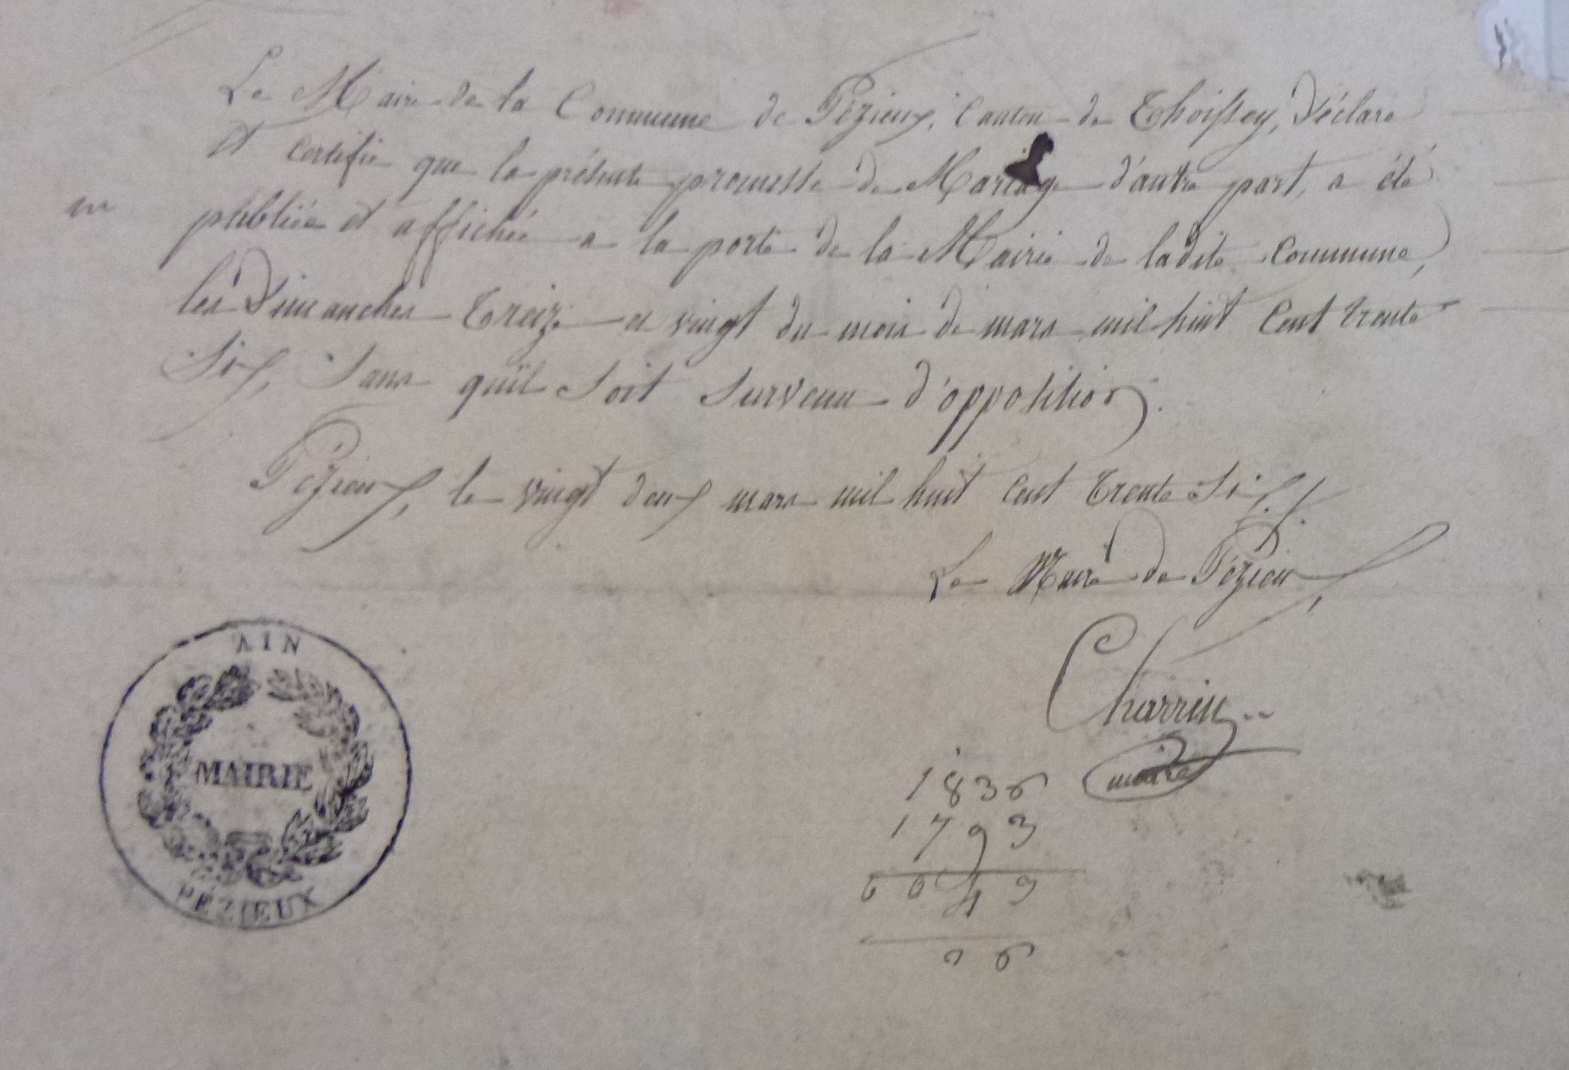 Le Maire de la Commune de Pézieux, Canton de Thoissey, Déclare
et certifie que la présente promesse de Mariage d'autre part, a été
publiée et affichée a la porte de la Mairie de ladite Commune,
les Dimanches treize et vingt du mois de mars mil huit Cent trente
Six, Sans quïl Soit Survenu d'opposition.
Pézieux, le vingt deux mars mil huit Cent trente Six./.
Le Maire de Pézieux,
Charrin
maire
1836
1793
0043
AIN
MAIRIE
PÉZIEUX